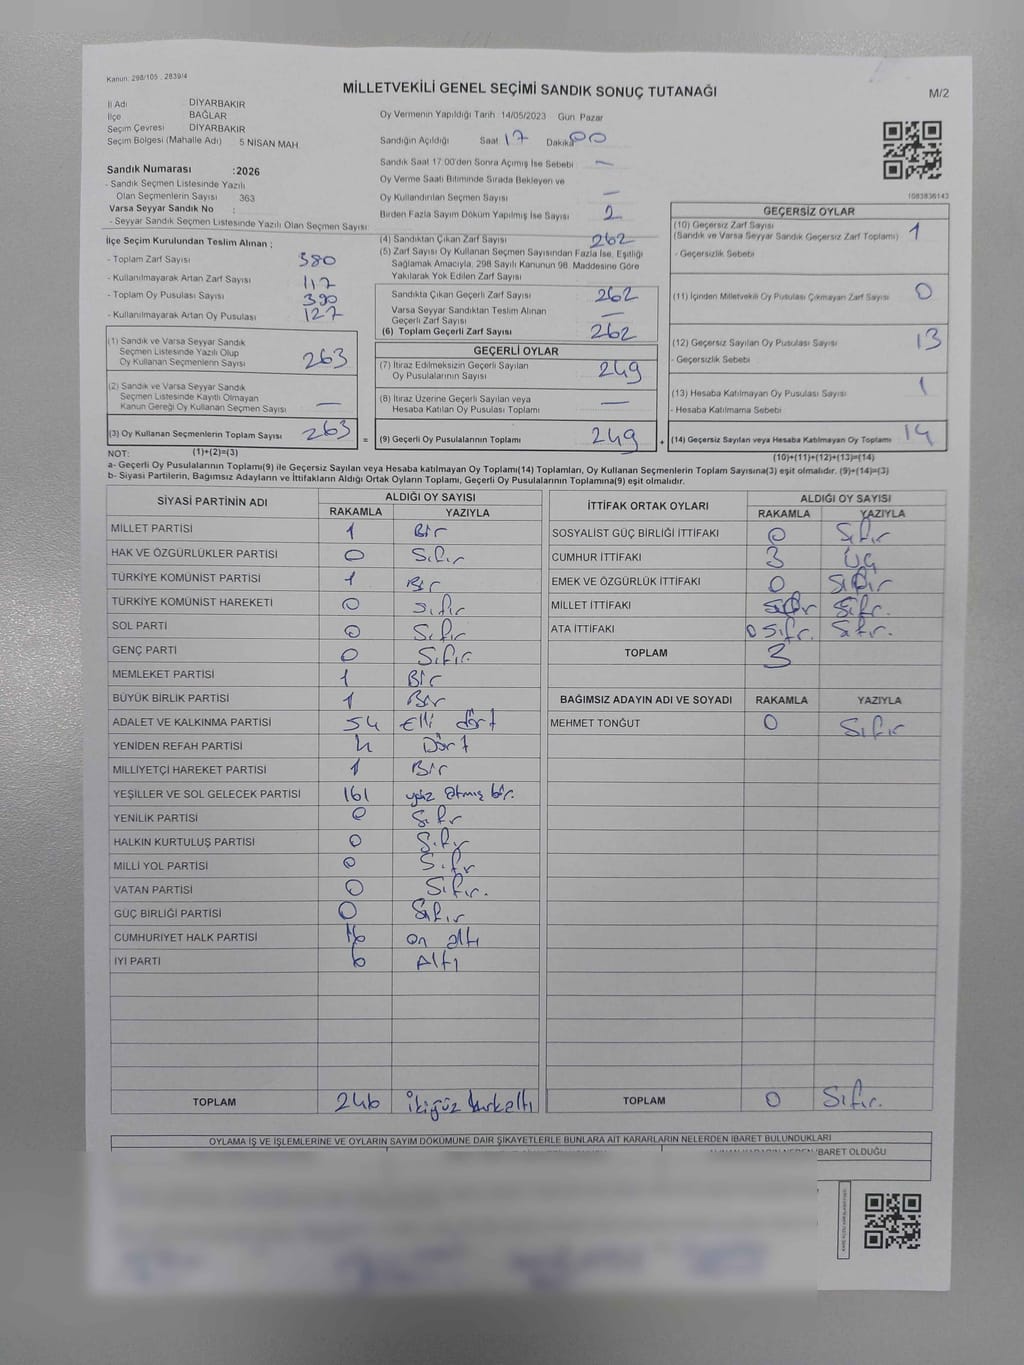 Kanun: 298/105 , 2839/4
MİLLETVEKİLİ GENEL SEÇİMİ SANDIK SONUÇ TUTANAĞI
M/2
İl Adı DİYARBAKIR
İlçe BAĞLAR
Seçim Çevresi DİYARBAKIR
Seçim Bölgesi (Mahalle Adı) 5 NİSAN MAH.
Sandık Numarası :2026
- Sandık Seçmen Listesinde Yazılı
Olan Seçmenlerin Sayısı 363
Varsa Seyyar Sandık No :
- Seyyar Sandık Seçmen Listesinde Yazılı Olan Seçmen Sayısı:
Oy Vermenin Yapıldığı Tarih 14/05/2023 Gün Pazar
Sandığın Açıldığı Saat 17 Dakika 00
Sandık Saat 17:00'den Sonra Açımış İse Sebebi —
Oy Verme Saati Bitiminde Sırada Bekleyen ve
Oy Kullandırılan Seçmen Sayısı —
Birden Fazla Sayım Döküm Yapılmış İse Sayısı 2
1083836143
İlçe Seçim Kurulundan Teslim Alınan ;
- Toplam Zarf Sayısı 380
- Kullanılmayarak Artan Zarf Sayısı 117
- Toplam Oy Pusulası Sayısı 390
- Kullanılmayarak Artan Oy Pusulası 127
(1) Sandık ve Varsa Seyyar Sandık
Seçmen Listesinde Yazılı Olup
Oy Kullanan Seçmenlerin Sayısı 263
(2) Sandık ve Varsa Seyyar Sandık
Seçmen Listesinde Kayıtlı Olmayan
Kanun Gereği Oy Kullanan Seçmen Sayısı —
(3) Oy Kullanan Seçmenlerin Toplam Sayısı 263
(4) Sandıktan Çıkan Zarf Sayısı 262
(5) Zarf Sayısı Oy Kullanan Seçmen Sayısından Fazla İse, Eşitliği
Sağlamak Amacıyla, 298 Sayılı Kanunun 98. Maddesine Göre
Yakılarak Yok Edilen Zarf Sayısı
Sandıkta Çıkan Geçerli Zarf Sayısı 262
Varsa Seyyar Sandıktan Teslim Alınan
Geçerli Zarf Sayısı —
(6) Toplam Geçerli Zarf Sayısı 262
GEÇERLİ OYLAR
(7) İtiraz Edilmeksizin Geçerli Sayılan
Oy Pusulalarının Sayısı 249
(8) İtiraz Üzerine Geçerli Sayılan veya
Hesaba Katılan Oy Pusulası Toplamı —
= (9) Geçerli Oy Pusulalarının Toplamı 249
GEÇERSİZ OYLAR
(10) Geçersiz Zarf Sayısı
(Sandık ve Varsa Seyyar Sandık Geçersiz Zarf Toplamı) 1
- Geçersizlik Sebebi
(11) İçinden Milletvekili Oy Pusulası Çıkmayan Zarf Sayısı 0
(12) Geçersiz Sayılan Oy Pusulası Sayısı 13
- Geçersizlik Sebebi
(13) Hesaba Katılmayan Oy Pusulası Sayısı 1
- Hesaba Katılmama Sebebi
+ (14) Geçersiz Sayılan veya Hesaba Katılmayan Oy Toplamı 14
NOT: (1)+(2)=(3) (10)+(11)+(12)+(13)=(14)
a- Geçerli Oy Pusulalarının Toplamı(9) ile Geçersiz Sayılan veya Hesaba katılmayan Oy Toplamı(14) Toplamları, Oy Kullanan Seçmenlerin Toplam Sayısına(3) eşit olmalıdır. (9)+(14)=(3)
b- Siyasi Partilerin, Bağımsız Adayların ve İttifakların Aldığı Ortak Oyların Toplamı, Geçerli Oy Pusulalarının Toplamına(9) eşit olmalıdır.
SİYASİ PARTİNİN ADI ALDIĞI OY SAYISI
RAKAMLA YAZIYLA
MİLLET PARTİSİ 1 Bir
HAK VE ÖZGÜRLÜKLER PARTİSİ 0 Sıfır
TÜRKİYE KOMÜNİST PARTİSİ 1 Bir
TÜRKİYE KOMÜNİST HAREKETİ 0 Sıfır
SOL PARTİ 0 Sıfır
GENÇ PARTİ 0 Sıfır
MEMLEKET PARTİSİ 1 Bir
BÜYÜK BİRLİK PARTİSİ 1 Bir
ADALET VE KALKINMA PARTİSİ 54 Elli dört
YENİDEN REFAH PARTİSİ 4 Dört
MİLLİYETÇİ HAREKET PARTİSİ 1 Bir
YEŞİLLER VE SOL GELECEK PARTİSİ 161 yüz atmış bir.
YENİLİK PARTİSİ 0 Sıfır
HALKIN KURTULUŞ PARTİSİ 0 Sıfır
MİLLİ YOL PARTİSİ 0 Sıfır
VATAN PARTİSİ 0 Sıfır.
GÜÇ BİRLİĞİ PARTİSİ 0 Sıfır
CUMHURİYET HALK PARTİSİ 16 on altı
İYİ PARTİ 6 Altı
TOPLAM 246 ikiyüz kırkaltı
İTTİFAK ORTAK OYLARI ALDIĞI OY SAYISI
RAKAMLA YAZIYLA
SOSYALİST GÜÇ BİRLİĞİ İTTİFAKI 0 Sıfır
CUMHUR İTTİFAKI 3 Üç
EMEK VE ÖZGÜRLÜK İTTİFAKI 0 Sıfır
MİLLET İTTİFAKI Sıfır Sıfır.
ATA İTTİFAKI 0 Sıfır. Sıfır.
TOPLAM 3
BAĞIMSIZ ADAYIN ADI VE SOYADI RAKAMLA YAZIYLA
MEHMET TONĞUT 0 Sıfır
TOPLAM 0 Sıfır.
OYLAMA İŞ VE İŞLEMLERİNE VE OYLARIN SAYIM DÖKÜMÜNE DAİR ŞİKAYETLERLE BUNLARA AİT KARARLARIN NELERDEN İBARET BULUNDUKLARI
İBARET OLDUĞU